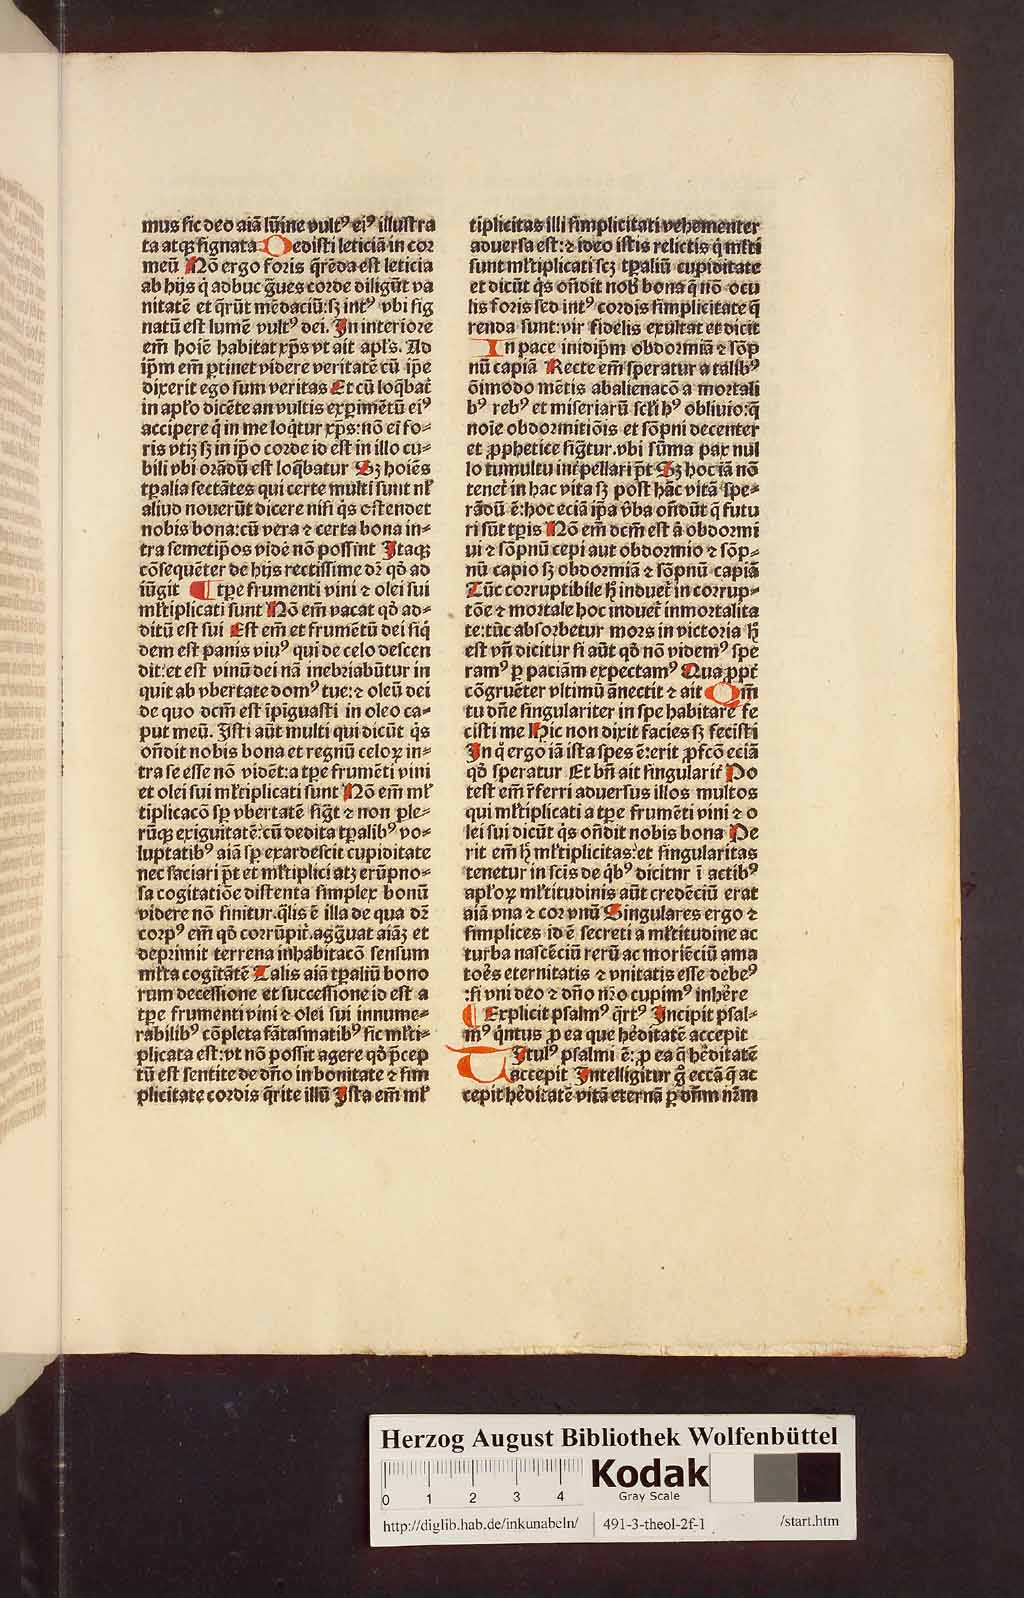 mus sic deo aiā lūine vultꝰ eiꝰ illustra
ta atqꝫ signata Dedisti leticiā in cor
meū Nō ergo foris q̄rēda est leticia
ab hijs q̇ adhuc g̈ues corde diligūt va
nitatē et q̄rūt mēdaciū: sꝫ intꝰ vbi sig
natū est lumē vultꝰ dei. In interiore
em̄ hoīe habitat xp̄s vt ait apl̓s. Ad
ip̄m em̄ ꝑtinet videre veritatē cū ip̄e
dixerit ego sum veritas Et cū loq̄bat̄
in apl̓o dicēte an vultis exꝑimētū eiꝰ
accipere q̇ in me loqt̄ur xp̄s: nō ei fo⸗
ris vtiqꝫ sꝫ in ip̄o corde id est in illo cu⸗
bili vbi orādū est loq̄batur Sꝫ hoīes
tꝑalia sectātes qui certe multi sunt nl̓
aliud nouerūt dicere nisi q̇s ostendet
nobis bona: cū vera ⁊ certa bona in⸗
tra semetip̄os vidē nō possint Itaqꝫ
cōsequēter de hijs rectissime dꝫ qđ ad
iūgit ¶ A tꝑe frumenti vini ⁊ olei sui
ml̓tiplicati sunt Nō em̄ vacat qđ ad⸗
ditū est sui Est em̄ et frumētū dei siq̇
dem est panis viuꝰ qui de celo descen
dit: et est vinū dei nā inebriabūtur in
quit ab vbertate domꝰ tue: ⁊ oleū dei
de quo dcm̄ est īpīguasti in oleo ca⸗
put meū. Isti aūt multi qui dicūt q̇s
oñdit nobis bona et regnū celoꝝ in⸗
tra se esse nō vidēt: a tꝑe frumēti vini
et olei sui ml̓tiplicati sunt Nō em̄ ml̓
tiplicacō sꝑ vbertatē sigt̄ ⁊ non ple⸗
rūqꝫ exiguitatē: cū dedita tꝑalibꝰ vo⸗
luptatibꝰ aiā sꝑ exardescit cupiditate
nec saciari p̄t et ml̓tiplici atqꝫ erūpno⸗
sa cogitatiōe distenta simplex bonū
videre nō sinitur. q̄lis ē illa de qua dꝫ
corpꝰ em̄ qđ corrūpit̄. agg̈uat aiāꝫ et
deprimit terrena inhabitacō sensum
ml̓ta cogitātē Talis aiā tꝑaliū bono
rum decessione et successione id est a
tꝑe frumenti vini ⁊ olei sui innume⸗
rabilibꝰ cōpleta fātasmatibꝰ sic ml̓ti⸗
plicata est: vt nō possit agere qđ p̄cep
tū est sentite de dn̄o in bonitate ⁊ sim
plicitate cordis q̄rite illū Ista em̄ ml̓
tiplicitas illi simplicitati vehementer
aduersa est: ⁊ ideo istis relictis q̇ ml̓ti
sunt ml̓tiplicati scꝫ tꝑaliū cupiditate
et dicūt q̇s oñdit nob̄ bona q̄ nō ocu
lis foris sed intꝰ cordis simplicitate q̄
renda sunt: vir fidelis exultat et dicit
In pace in idip̄m obdormiā ⁊ sōp
nū capiā Recte em̄ speratur a talibꝰ
ōimodo mētis abalienacō a mortali
bꝰ rebꝰ et miseriarū scl̓i hꝰ obliuio: q̄
noīe obdormitiōis et sōpni decenter
et ꝓphetice sigt̄ur. vbi sūma pax nul
lo tumultu int̄pellari p̄t Sꝫ hoc iā nō
tenet̄ in hac vita sꝫ post hāc vitā spe⸗
rādū ē: hoc eciā ip̄a v̓ba oñdūt q̇ futu
ri sūt tꝑis Nō em̄ dcm̄ est ā obdormi
ui ⁊ sōpnū cepi aut obdormio ⁊ sōp⸗
nū capio sꝫ obdormiā ⁊ sōpnū capiā
Tūc corruptibile hꝫ induet̄ incorrup⸗
tōe ⁊ mortale hoc induet̄ inmortalita
te: tūc absorbetur mors in victoria hꝫ
est vn̄ dicitur si aūt qđ nō videmꝰ spe
ramꝰ ꝑ paciāꝫ expectamꝰ Qua ꝓpt̄
cōgruēter vltimū ānectit ⁊ ait Qm̄
tu dn̄e singulariter in spe habitare fe
cisti me Hic non dixit facies sꝫ fecisti
In q̇ ergo iā ista spes ē: erit ꝓfcō eciā
qđ speratur Et bn̄ ait singularit̄ Po
test em̄ r̄ferri aduersus illos multos
qui ml̓tiplicati a tꝑe frumēti vini ⁊ o
lei sui dicūt q̇s oñdit nobis bona Pe
rit em̄ hꝫ ml̓tiplicitas: et singularitas
tenetur in sc̄is de q̇bꝰ dicitnr ī actibꝰ
apl̓oꝝ ml̓titudinis aūt credēciū erat
aiā vna ⁊ cor vnū Singulares ergo ⁊
simplices id ē secreti a ml̓titudine ac
turba nascēciū rerū ac moriēciū ama
toēs eternitatis ⁊ vnitatis esse debeꝰ
:si vni deo ⁊ dn̄o nr̄o cupimꝰ inhēre
¶ Explicit psalmꝰ q̄rtꝰ Incipit psal⸗
mꝰ q̇ntus ꝓ ea que h̓editatē accepit
Titulꝰ psalmi ē: ꝓ ea q̄ h̓editatē
accepit Intelligitur ḡ ecc̄a q̄ ac
cepit h̓editatē vitā eternā ꝑ dn̄m nr̄m
Herzog August Bibliothek Wolfenbüttel
0 1 2 3 4
Kodak
Gray Scale
http://diglib.hab.de/inkunabeln/ 491-3-theol-2f-1 /start.htm